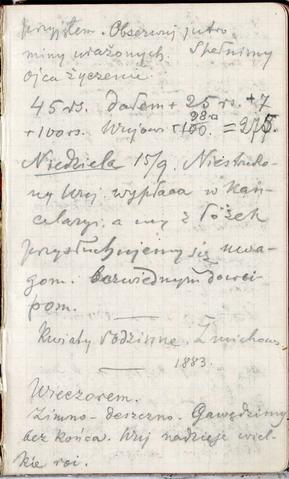 przyszłem. Obserwuj jutro
miny urażonych. Spełnimy
ojca życzenie.
45 rs. dałem + 25 rs. + 7
+ 100 rs. Wujowi + 100. = 275.
Niedziela 15/9.
ny Wuj wypłaca w Kan-
celaryi, a my z łóżek
przysłuchujemy się uwa-
gom. bezwiednym dowci-
pom.
Kwiaty rodzinne. Żmichows.
1883.
Wieczorem.
Zimno - deszczno. Gawędzimy
bez końca. Wuj nadzieje wiel-
kie roi.